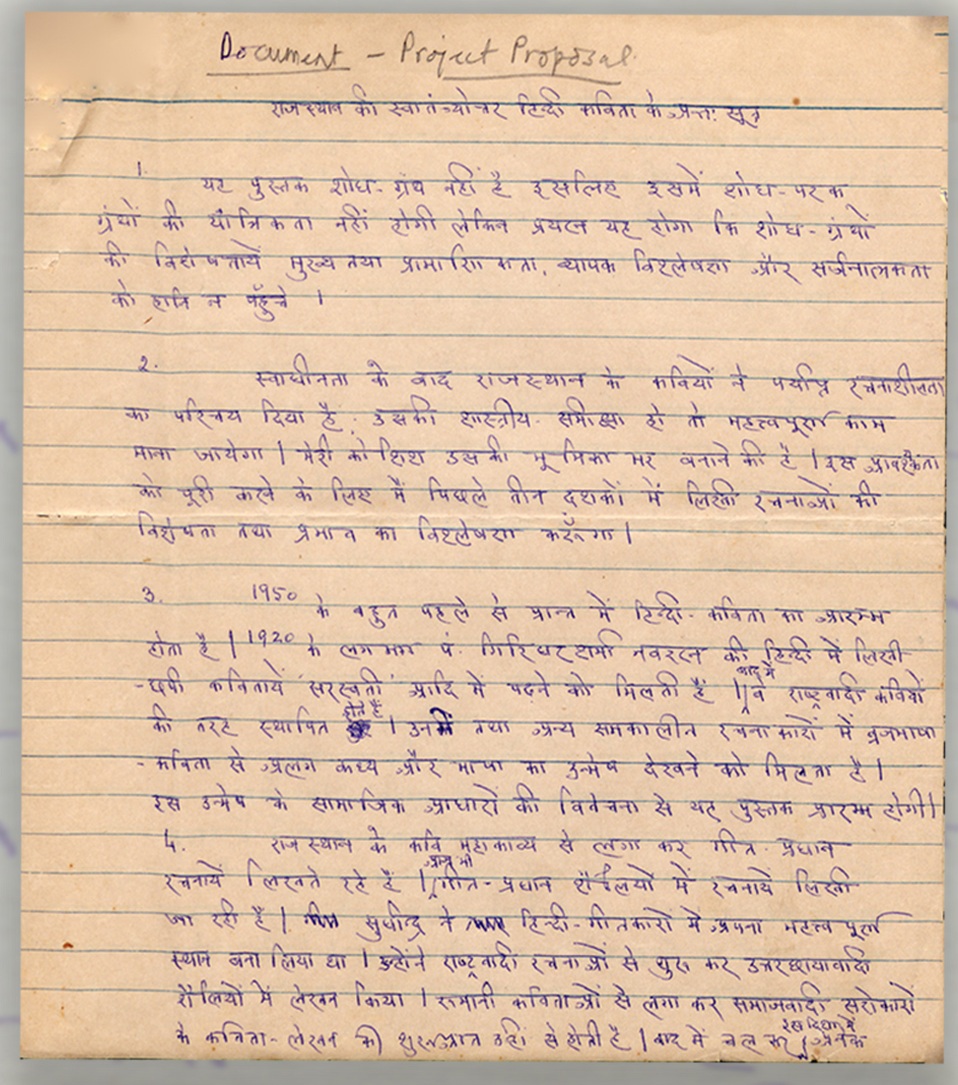 Document - Project Proposal
राजस्थान की स्वातंत्र्योत्तर हिन्दी कविता के अन्तः सूत्र
1. यह पुस्तक शोध-ग्रंथ नहीं है इसलिए इसमें शोध-परक
ग्रंथों की यांत्रिकता नहीं होगी लेकिन प्रयत्न यह होगा कि शोध-ग्रंथों
की विशेषतायें मुख्यतया प्रामाणिकता, व्यापक विश्लेषण और सर्जनात्मकता
को हानि न पहुँचे ।
2. स्वाधीनता के बाद राजस्थान के कवियों ने पर्याप्त रचनाशीलता
का परिचय दिया है । उसकी शास्त्रीय समीक्षा हो तो महत्त्वपूर्ण काम
माना जायेगा । मेरी कोशिश उसकी भूमिका भर बनाने की है । इस आवश्यकता
को पूरी करने के लिए मैं पिछले तीन दशकों में लिखी रचनाओं की
विशेषता तथा प्रभाव का विश्लेषण करूँगा ।
3. 1950 के बहुत पहले से प्रान्त में हिन्दी-कविता का प्रारम्भ
होता है । 1920 के लगभग पं. गिरिधर शर्मा नवरत्न की हिन्दी में लिखी
-छपी कवितायें 'सरस्वती' आदि में पढ़ने को मिलती हैं । बाद में वे राष्ट्रवादी कवियों
की तरह स्थापित होते हैं । उनमें तथा अन्य समकालीन रचनाकारों में ब्रजभाषा
-कविता से अलग कथ्य और भाषा का उन्मेष देखने को मिलता है ।
इस उन्मेष के सामाजिक आधारों की विवेचना से यह पुस्तक प्रारम्भ होगी ।
4. राजस्थान के कवि महाकाव्य से लगा कर गीत-प्रधान
रचनायें लिखते रहे हैं । आज भी गीत-प्रधान शैलियों में रचनायें लिखी
जा रही हैं । सुधीन्द्र ने हिन्दी-गीतकारों में अपना महत्त्वपूर्ण
स्थान बना लिया था । उन्होंने राष्ट्रवादी रचनाओं से शुरू कर उत्तरछायावादी
शैलियों में लेखन किया । रूमानी कविताओं से लगा कर समाजवादी सरोकारों
के कविता-लेखन की शुरूआत वहीं से होती है । बाद में चल कर इस दिशा में अनेक